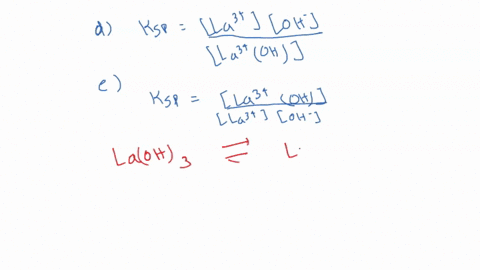 d) Ksp = [La³⁺] [OH⁻] / [La³⁺(OH)]
e) Ksp = [La³⁺ (OH)] / [La³⁺] [OH⁻]
La(OH)₃ ⇌ L